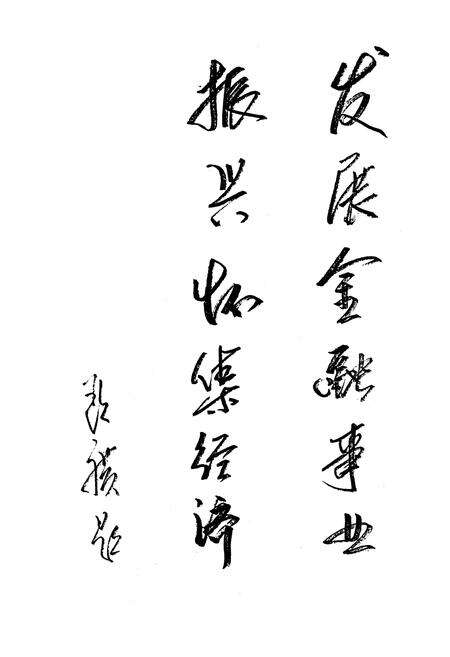 发展金融事业
振兴怀集经济
题